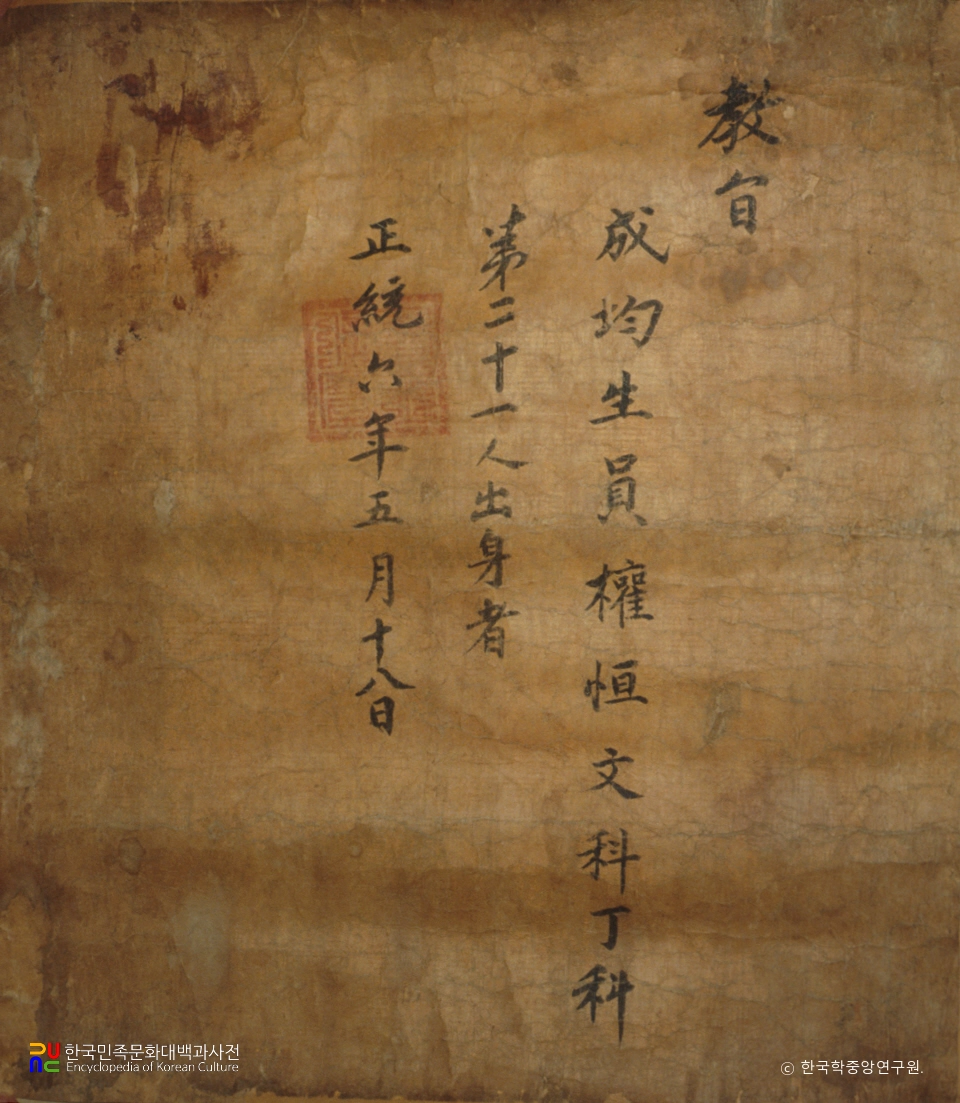 教旨
成均生員權恒文科丁科
第二十一人出身者
正統六年五月十八日
한국민족문화대백과사전
Encyclopedia of Korean Culture
© 한국학중앙연구원.